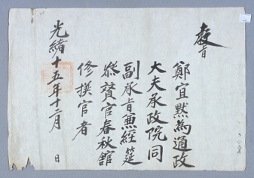 教旨
鄭宜默為通政
大夫承政院同
副承旨兼經筵
叅贊官春秋館
修撰官者
光緒十五年十二月 日